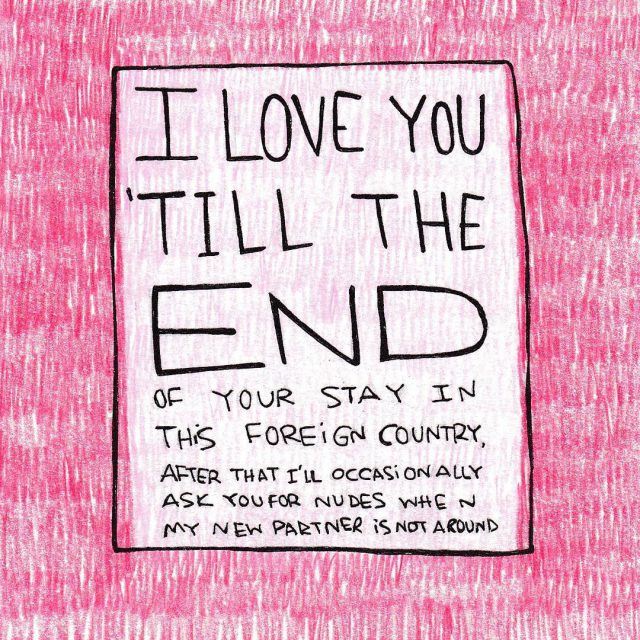 I LOVE YOU
'TILL THE
END
OF YOUR STAY IN
THiS FOREiGN COUNTRY,
AFTER THAT I'LL OCCASiONALLY
ASK YOU FOR NUDES WHEN
MY NEW PARTNER iS NOT AROUND